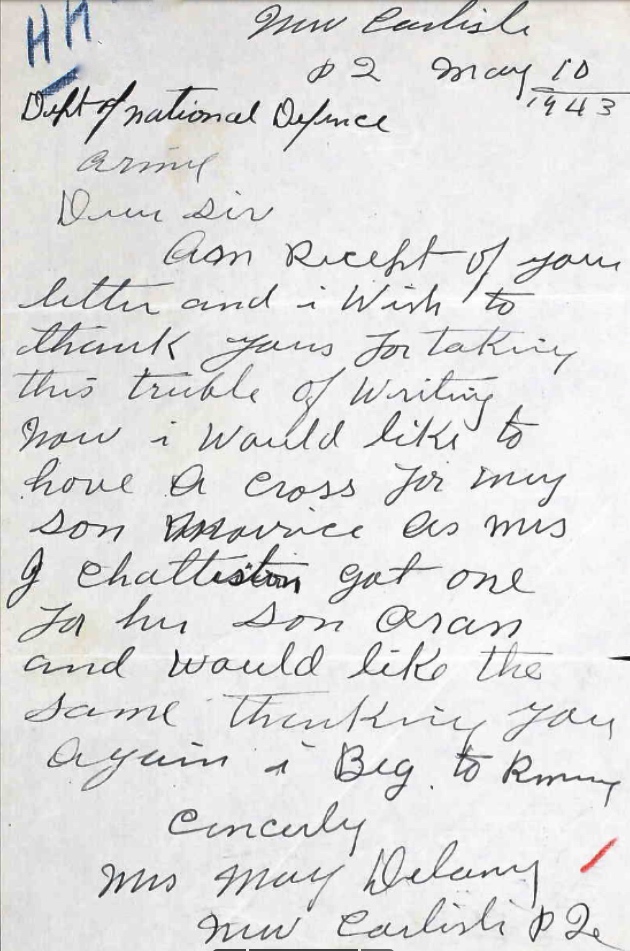 HH
New Carlisle
P Q May 10
1943
Dept of national Defence
Army
Dear Sir
Aam Recept of your
letter and i Wish to
thank yous for taking
this truble of Writing
Now i Would like to
have A Cross for my
son Maurice as mrs
J Chatterton got one
for her son Aran
and would like the
same thenking you
Again i Beg to Rmay
Cincerly
Mrs May Delany
New Carlisle P Qe